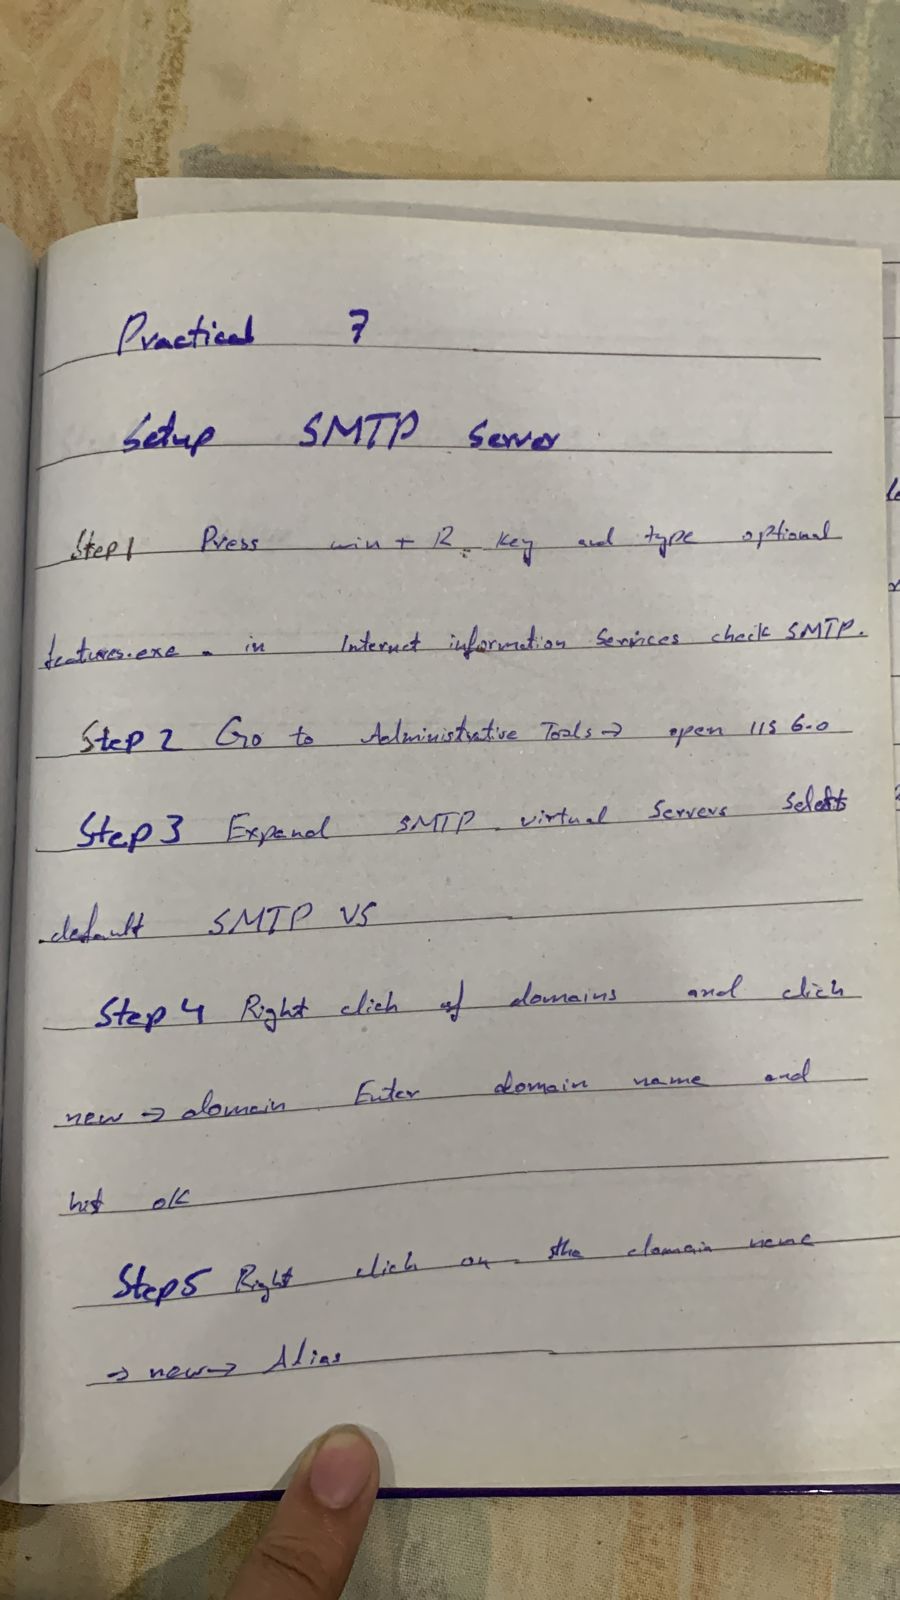 Practical 7
Setup SMTP Server
Step 1 Press win + R key and type optional
features.exe . in Internet information Services check SMTP.
Step 2 Go to Administrative Tools → open IIS 6.0
Step 3 Expand SMTP virtual Servers Select
default SMTP VS
Step 4 Right click of domains and click
new → domain Enter domain name and
hit ok
Step 5 Right click on the domain name
→ new → Alias